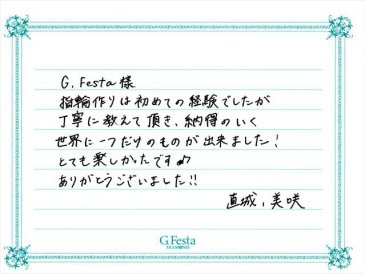 G.Festa様
指輪作りは初めての経験でしたが
丁寧に教えて頂き、納得のいく
世界に一つだけのものが出来ました!
とても楽しかったです♪
ありがとうございました!!
直城、美咲
G.Festa
DIAMOND